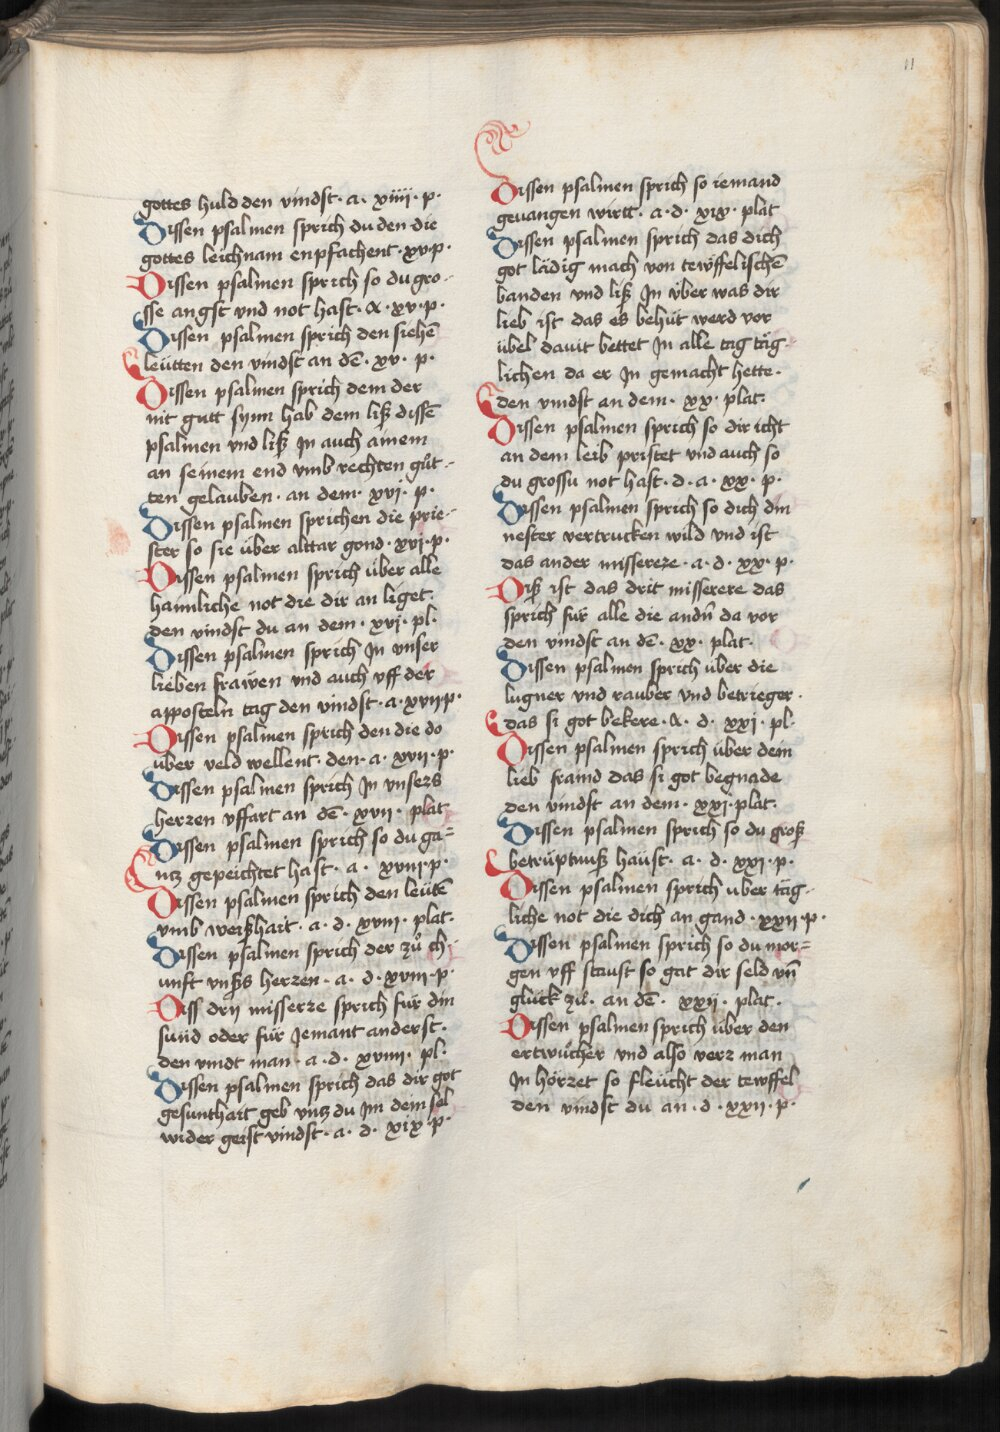 11
gottes huld den vindst · a · xiiii · p ·
Dissen psalmen sprich du den die
gottes leichnam enpfachent · xv · p ·
Dissen psalmen sprich so du gro-
sse angst vnd not hast · & · xv · p ·
Dissen psalmen sprich den siechē
leütten den vindst an dē · xv · p ·
Dissen psalmen sprich dem der
nit gutt synn hab dem liß dissē
psalmen vnd liß Jn auch ainem
an seinem end vmb rechten gůt-
ten gelauben · an dem · xvj · p ·
Dissen psalmen sprichen die prie-
ster so sie über alttar gond · xvj · p ·
Dissen psalmen sprich über alle
haimliche not die dir an liget ·
den vindst du an dem · xvj · pl ·
Dissen psalmen sprich Jn vnser
lieben frawen vnd auch vff der
apposteln tag den vindst · a · xvij · p ·
Dissen psalmen sprich den die do
über veld wellent · den · a · xvij · p ·
Dissen psalmen sprich Jn vnsers
herren vffart an dē · xvii · plat
Dissen psalmen sprich so du ga=
ntz gepeichtet hast · a · xviij · p ·
Dissen psalmen sprich den leütē
vmb weißhait · a · d · xviii · plat ·
Dissen psalmen sprich der zů ch-
unft vnßs herzen · a · d · xviii · p ·
Diss drij misserze sprich für din
sünd oder für Jemant anderst ·
den vindt man · a · d · xviiii · pl ·
Dissen psalmen sprich das dir got
gesunthait geb vntz du Jm dein sel
wider geist vindst · a · d · xix · p ·
Dissen psalmen sprich so iemand
gevangen wirtt · a · d · xix · plat
Dissen psalmen sprich das dich
got lädig mach von tewffelischē
banden vnd liß Jn über was dir
lieb ist das es behüt werd vor
übel dauit bettet Jn alle tag täg-
lichen da er Jn gemacht hette ·
den vindst an dem · xx · plat ·
Dissen psalmen sprich so dir icht
an dem leib pristet vnd auch so
du grossu not hast · d · a · xx · p ·
Dissen psalmen sprich so dich din
nester vertrucken wild vnd ist
das ander misserere · a · d · xx · p ·
Diß ist das drit misserere das
sprich für alle die andn̄ da vor
den vindst an dē · xx · plat ·
Dissen psalmen sprich über die
lugner vnd rauber vnd betrieger ·
das si got bekere · & · d · xxj · pl ·
Dissen psalmen sprich über dem
lieb fraind das si got begnade
den vindst an dem · xxj · plat ·
Dissen psalmen sprich so du groß
betrüptnuß häust · a · d · xxj · p ·
Dissen psalmen sprich über täg-
liche not die dich an gand · xxij · p ·
Dissen psalmen sprich so du mor=
gen vff staust so gat dir seld vn̄
glück zů · an dē · xxij · plat ·
Dissen psalmen sprich über den
ertwücher vnd also verz man
Jn hörzet so fleücht der tewffel
den vindst du an · d · xxij · p ·